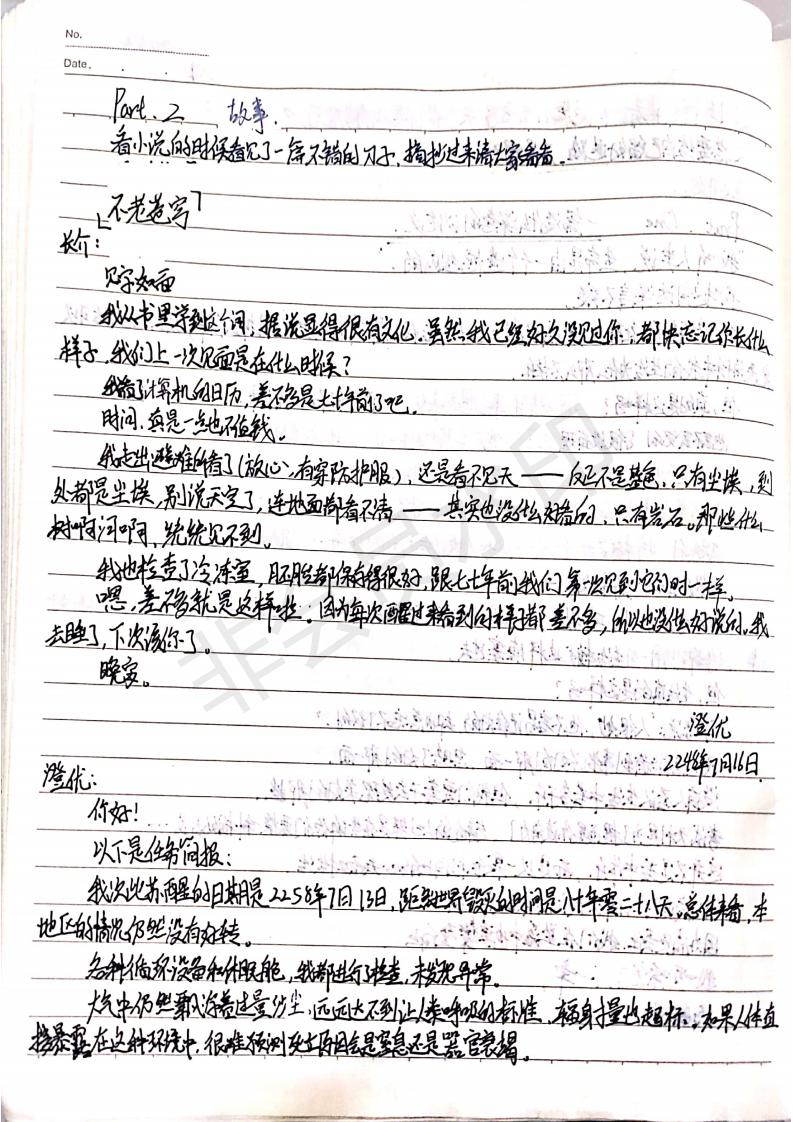 No.
Date.
Part. 2 故事.
看小说的时候看见了一篇不错的刀子，摘抄过来请大家看看。
「不老卷写」
长介：
见字如面
我从书里学到这个词，据说显得很有文化。虽然我已经好久没见过你，都快忘记你长什么
样子，我们上一次见面是在什么时候？
我看了计算机的日历，差不多是七十年前了吧。
时间，真是一点也不值钱。
我走出避难所看了（放心，有穿防护服），还是看不见天——反正不是蓝色，只有尘埃，到
处都是尘埃，别说天空了，连地面都看不清——其实也没什么好看的，只有岩石。那些什么
树啊河啊，统统见不到。
我也检查了冷冻室，胚胎都保存得很好，跟七十年前我们第一次见到它们时一样。
嗯，差不多就是这样啦。因为每次醒过来看到的样子都差不多，所以也没什么好说的。我
去睡了，下次该你了。
晚安。
澄优
2248年7月16日
澄优：
你好！
以下是任务简报：
我次此苏醒的日期是2258年7日13日，距离世界毁灭的时间是八十年零二十八天。总体来看，本
地区的情况仍然没有好转。
各种循环设备和休眠舱，我都进行了检查，未发现异常。
大气中仍然飘浮着过量沙尘，远远达不到让人类呼吸的标准，辐射量也超标。如果人体直
接暴露在这种环境中，很难预测死亡原因会是窒息还是器官衰竭。
非会员水印